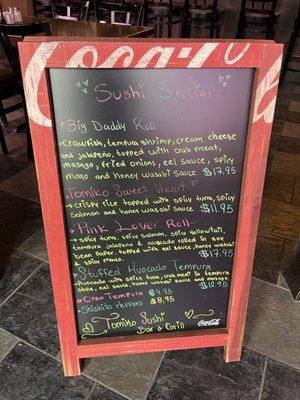 Coca-Cola
Sushi Special
Big Daddy Roll
Crawfish, tempura shrimp, cream cheese
and jalapeño, topped with crab meat,
masago, fried onions, eel sauce, spicy
mayo and honey wasabi sauce $17.95
Tomiko Sweet Heart
crispy rice topped with spicy tuna, spicy
Salmon and honey wasabi sauce $11.95
Pink Lover Roll
spicy tuna, spicy salmon, spicy yellowtail,
tempura jalapeno & avocado rolled in soy
bean paper, topped with eel sauce, honey wasabi
& spicy mayo. $17.95
Stuffed Avocado Tempura
Avocado with spicy tuna, crab meat in tempura
style, eel sauce, honey wasabi and masago $12.95
Oreo Tempura $9.95
Shishito Peppers $8.95
Tomiko Sushi
Bar & Grill
Coca-Cola